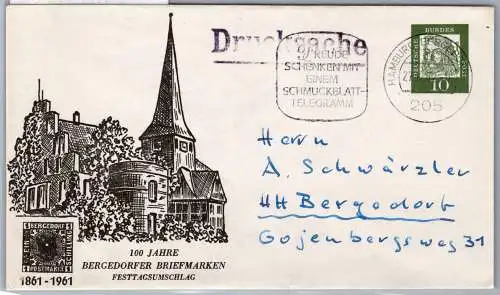 Drucksache
FREUDE
SCHENKEN MIT
EINEM
SCHMUCKBLATT-
TELEGRAMM
HAMBURG
205
DEUTSCHE BUNDESPOST
10
Herrn
A. Schwärzler
HH Bergedorf
Gojenbergsweg 31
BERGEDORF
POSTMARKE
EIN
SCHILLING
1861-1961
100 JAHRE
BERGEDORFER BRIEFMARKEN
FESTTAGSUMSCHLAG